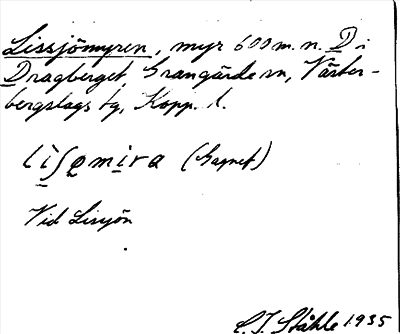 Lissjömyren, myr 600 m. n. D i
Dragberget, Grangärde sn, Väster-
bergslags tg, Kopp. l.
lìʃǫmịra (Gagnef)
Vid Lissjön
C. I. Ståhle 1935